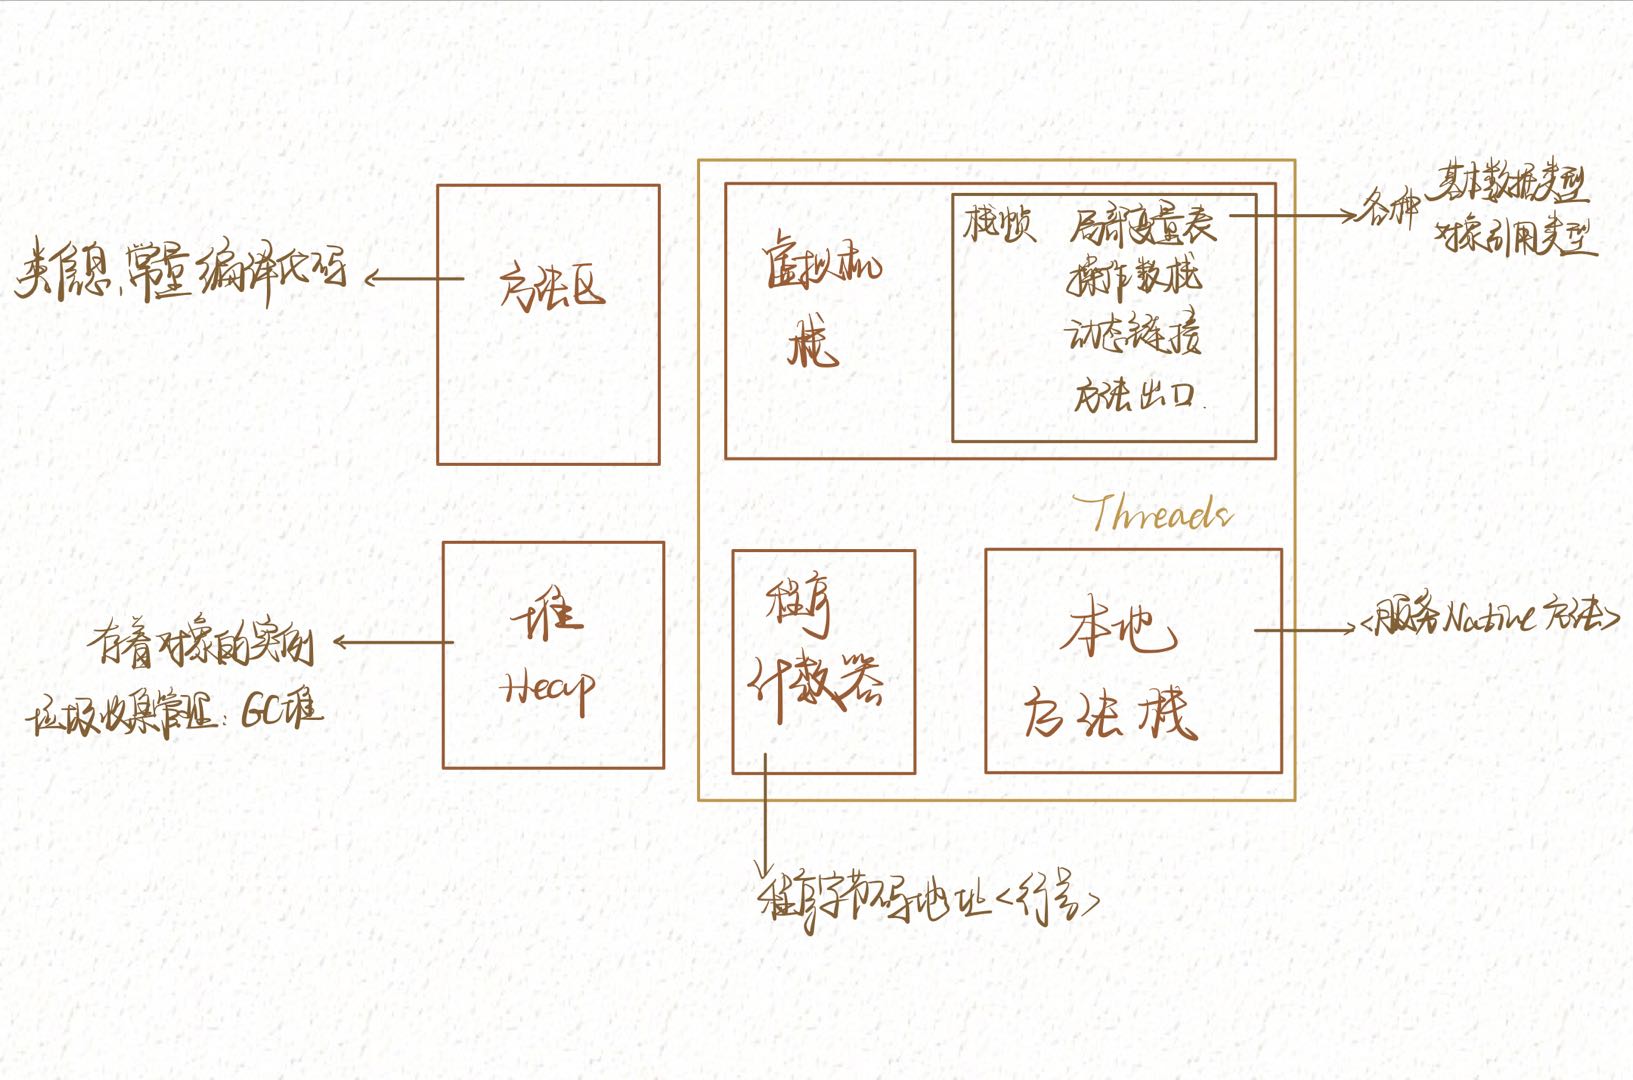 类信息、常量 编译代码
方法区
虚拟机
栈
栈帧 局部变量表
操作数栈
动态链接
方法出口.
各种
基本数据类型
对象引用类型
Threads
堆
Heap
存着对象的实例
垃圾收集管理: GC堆
程序
计数器
本地
方法栈
<服务Native方法>
程序字节码地址<行号>